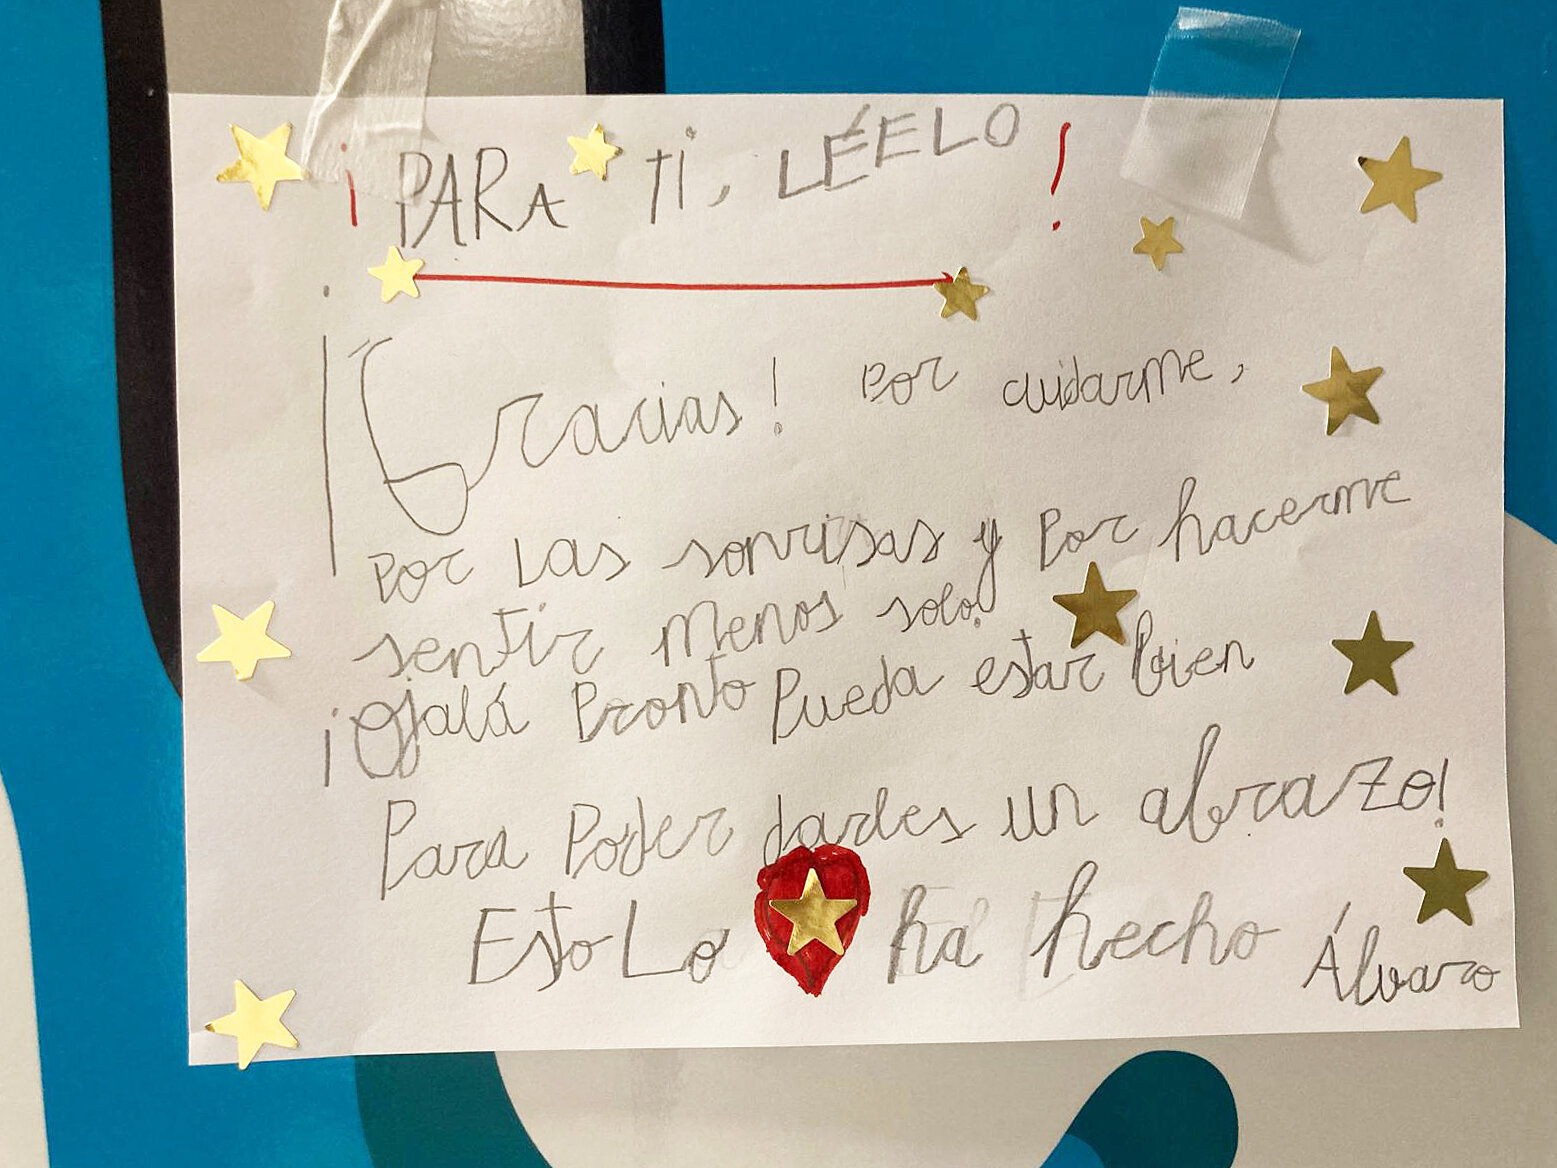 ¡PARA TI, LÉELO!
¡Gracias! Por cuidarme,
Por Las sonrisas y Por hacerme
sentir menos solo!
¡Ojalá Pronto Pueda estar bien
Para Poder darles un abrazo!
Esto Lo ha hecho Álvaro